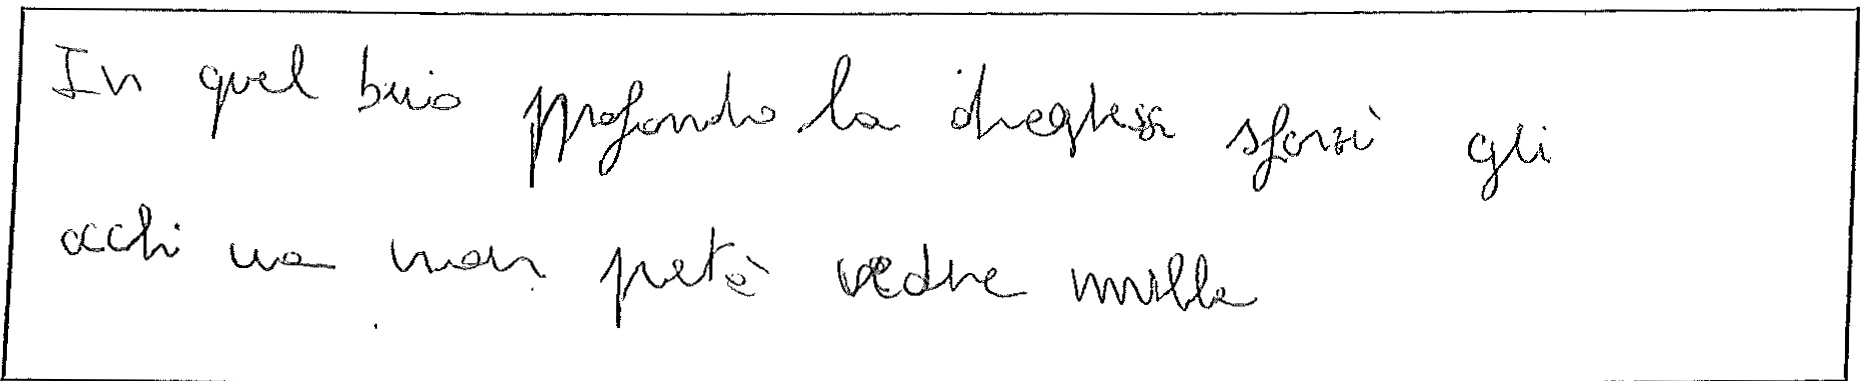 In quel buio profondo la dreghessa sforzò gli
occhi ma non potè vedere nulla